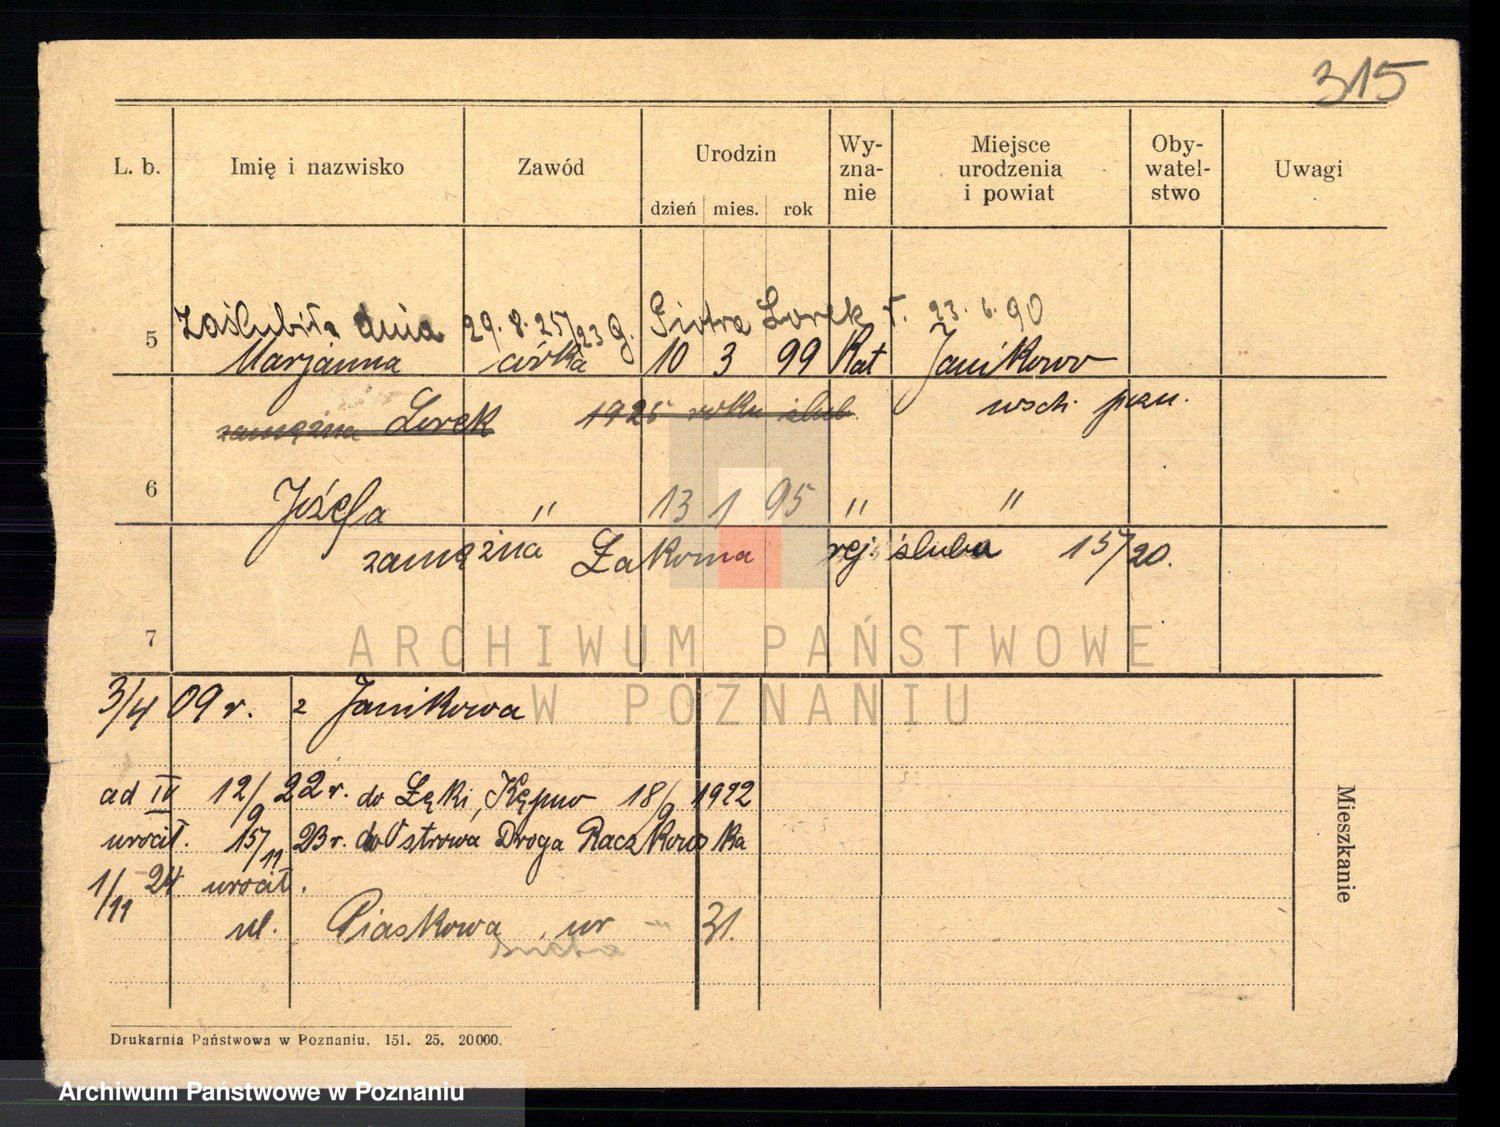 315
L. b. Imię i nazwisko Zawód Urodzin Wy-zna-nie Miejsce urodzenia i powiat Oby-watel-stwo Uwagi
dzień mies. rok
Zaślubiła dnia 29.8.25/23 g. Piotra Lorek r. 23.6.90
5 Marjanna córka 10 3 99 Kat Janikowo
wsch. pozn.
zamężna Lorek 1925 roku ślub
6 Józefa " 13 1 95 " "
zamężna Łakoma rej. ślubu 15/20.
7
ARCHIWUM PAŃSTWOWE
W POZNANIU
3/4 09 r. z Janikowa
ad IV 12/9 22 r. do Łęki, Kępno 18/9 1922
urocił. 15/11 23 r. do Ostrowa Droga Raczkowska
1/11 24 urocił.
ul. Piaskowa nr 31.
Mieszkanie
Drukarnia Państwowa w Poznaniu. 151. 25. 20000.
Archiwum Państwowe w Poznaniu